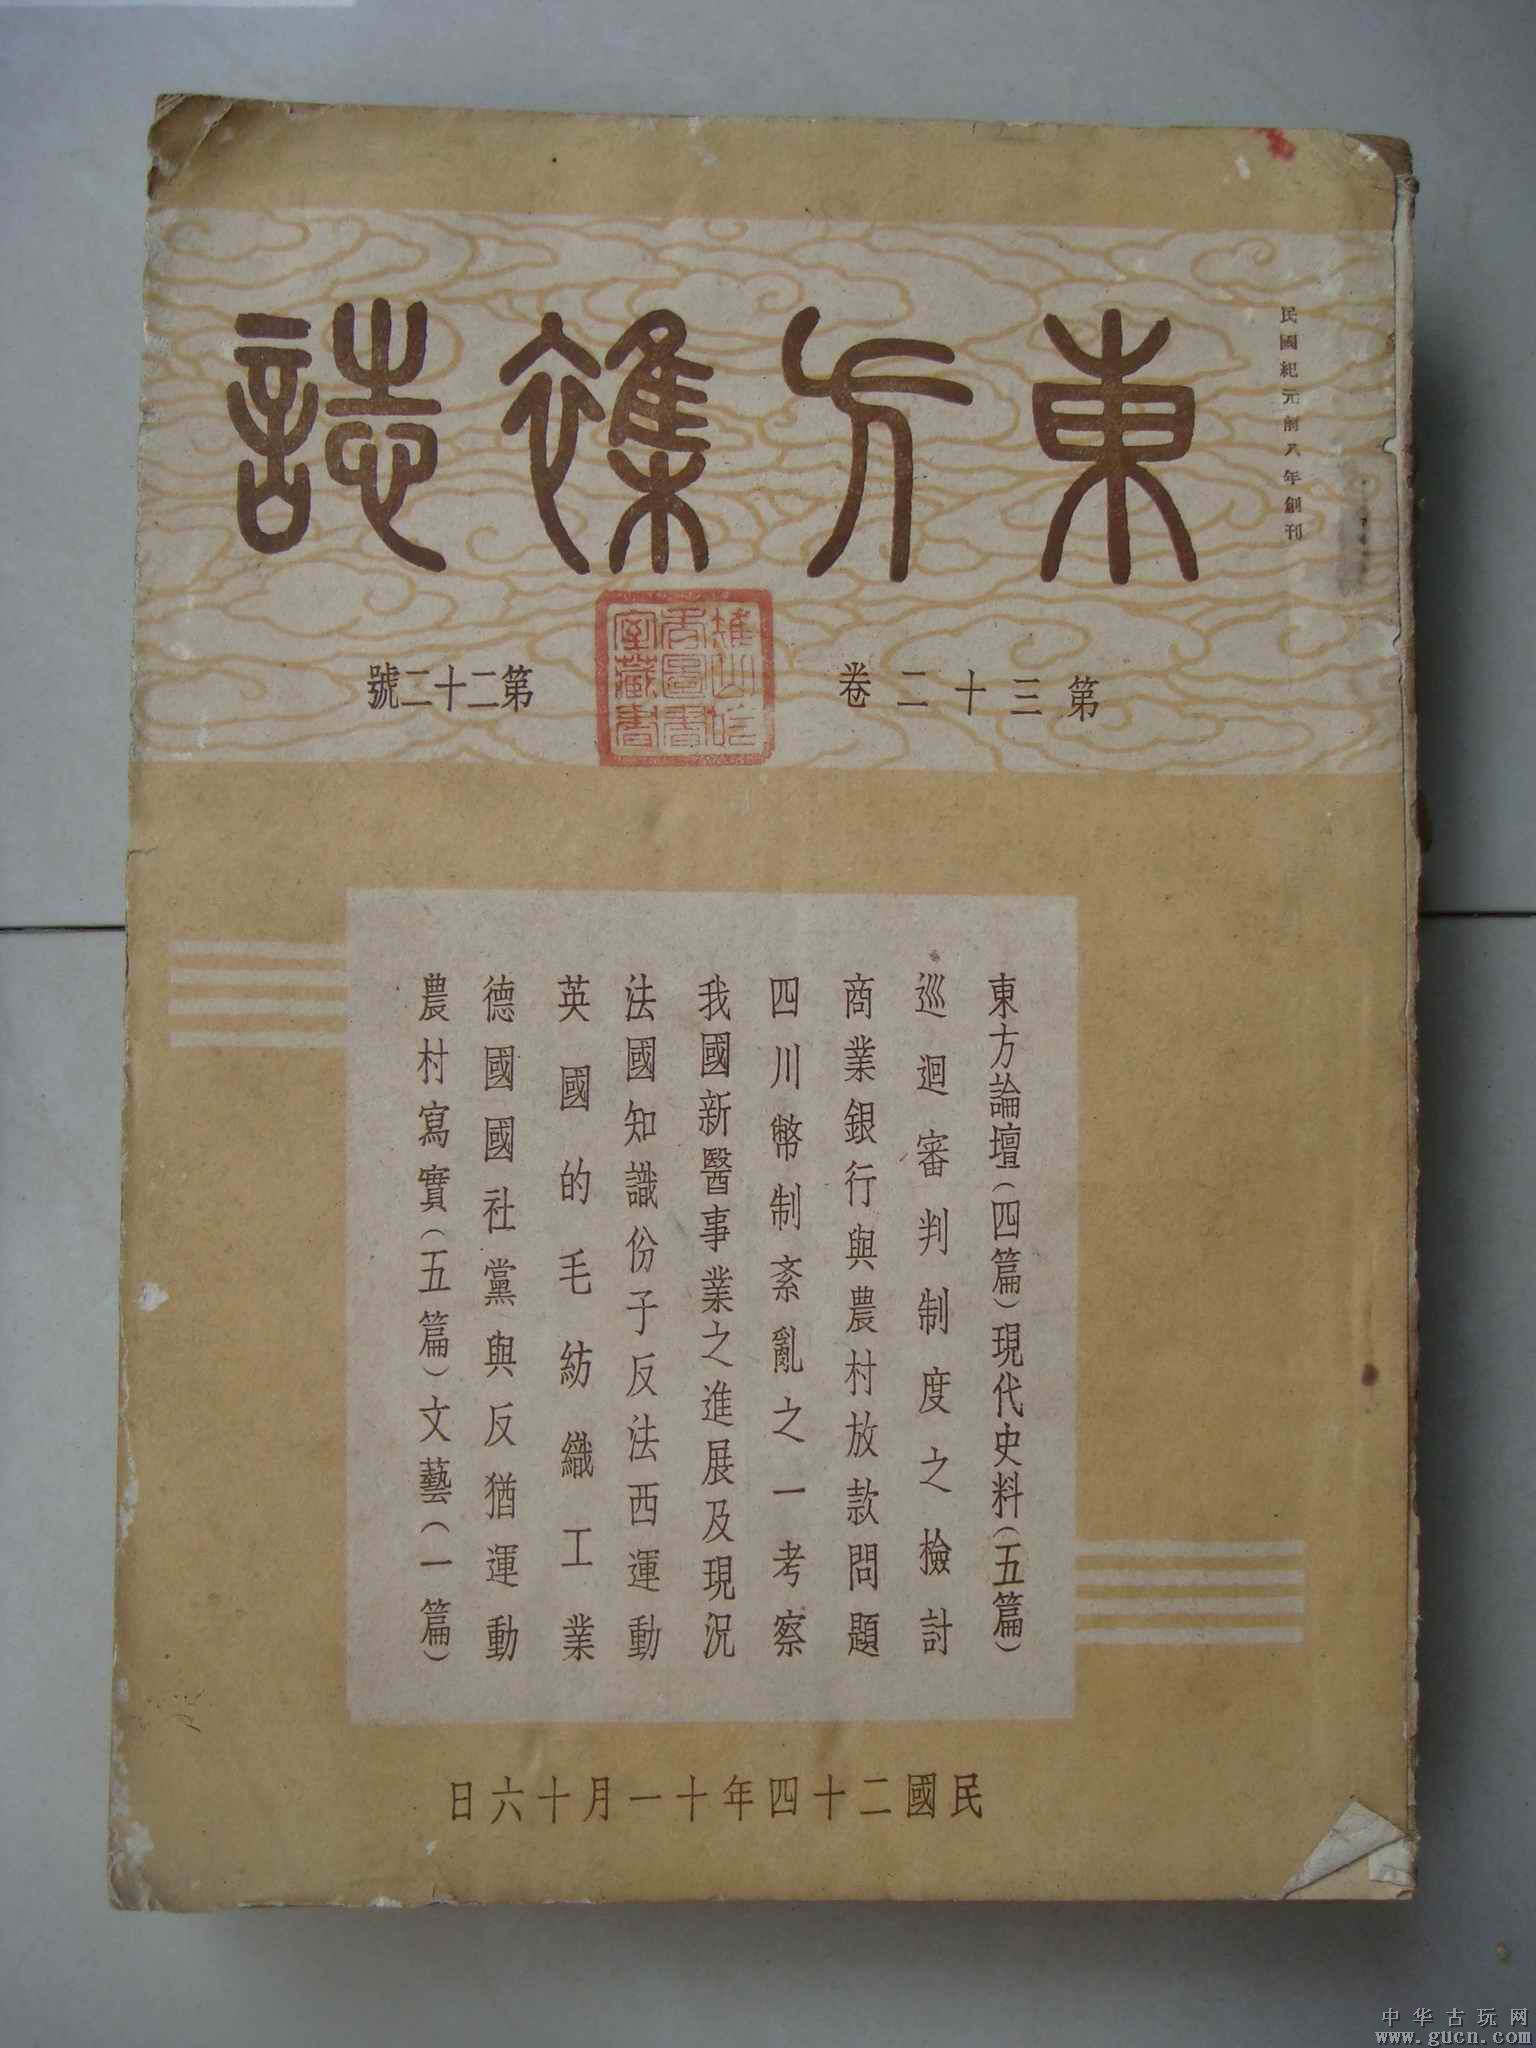 東方雜誌
民國紀元前八年創刊
第三十二卷
第二十二號
東方論壇（四篇）現代史料（五篇）
巡迴審判制度之檢討
商業銀行與農村放款問題
四川幣制紊亂之一考察
我國新醫事業之進展及現況
法國知識份子反法西運動
英國的毛紡織工業
德國國社黨與反猶運動
農村寫實（五篇）文藝（一篇）
民國二十四年十一月十六日
中华古玩网
www.gucn.com